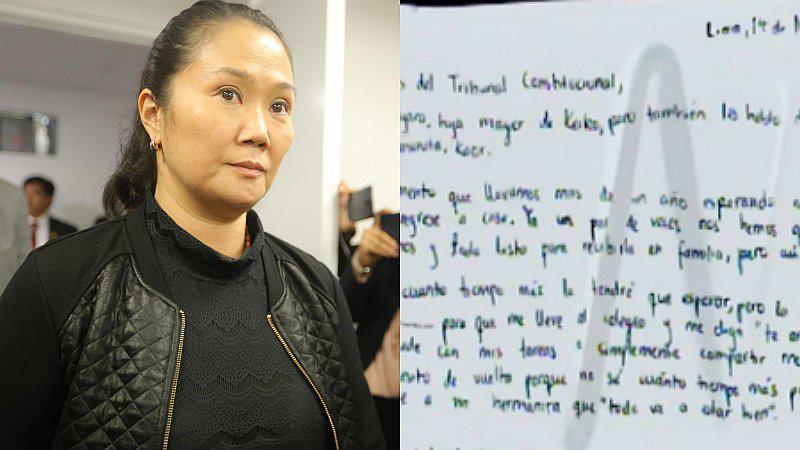 Lima, 14 de
del Tribunal Constitucional,
hija mayor de Keiko, pero también les hablo
Kaori.
que llevamos mas de un año esperando
a casa. Ya un par de veces nos hemos
y todo listo para recibirla en familia, pero
cuanto tiempo más la tendré que esperar, pero lo
para que me lleve al colegio y me diga "te
con mis tareas o simplemente compartir
de vuelta porque no sé cuánto tiempo más
a mi hermanita que "todo va a estar bien".